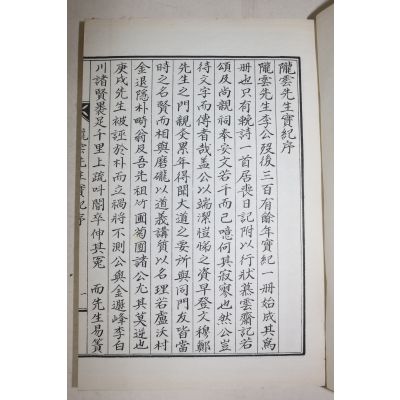 隴雲先生實紀序
隴雲先生李公歿後三百有餘年實紀一冊始成其爲
冊也只有輓詩一首居喪日記附以行狀慕雲齋記若
頌及尚親祠奉安文若干而已噫何其寂寥也然公豈
待文字而傳者哉盖公以端潔愷悌之資早登文穆鄭
先生之門親炙累年得聞大道之要所與同門友皆當
時之名賢而相與磨礲以道義講質以名理若盧沃村
金退隱朴畸翁及吾先祖竹圃菊園諸公尤其莫逆也
庚戌先生被誣於朴而立禍將不測公與金遯峰李白
川諸賢裹足千里上疏叫閤卒伸其冤 而先生易簀
隴雲先生實紀序 一